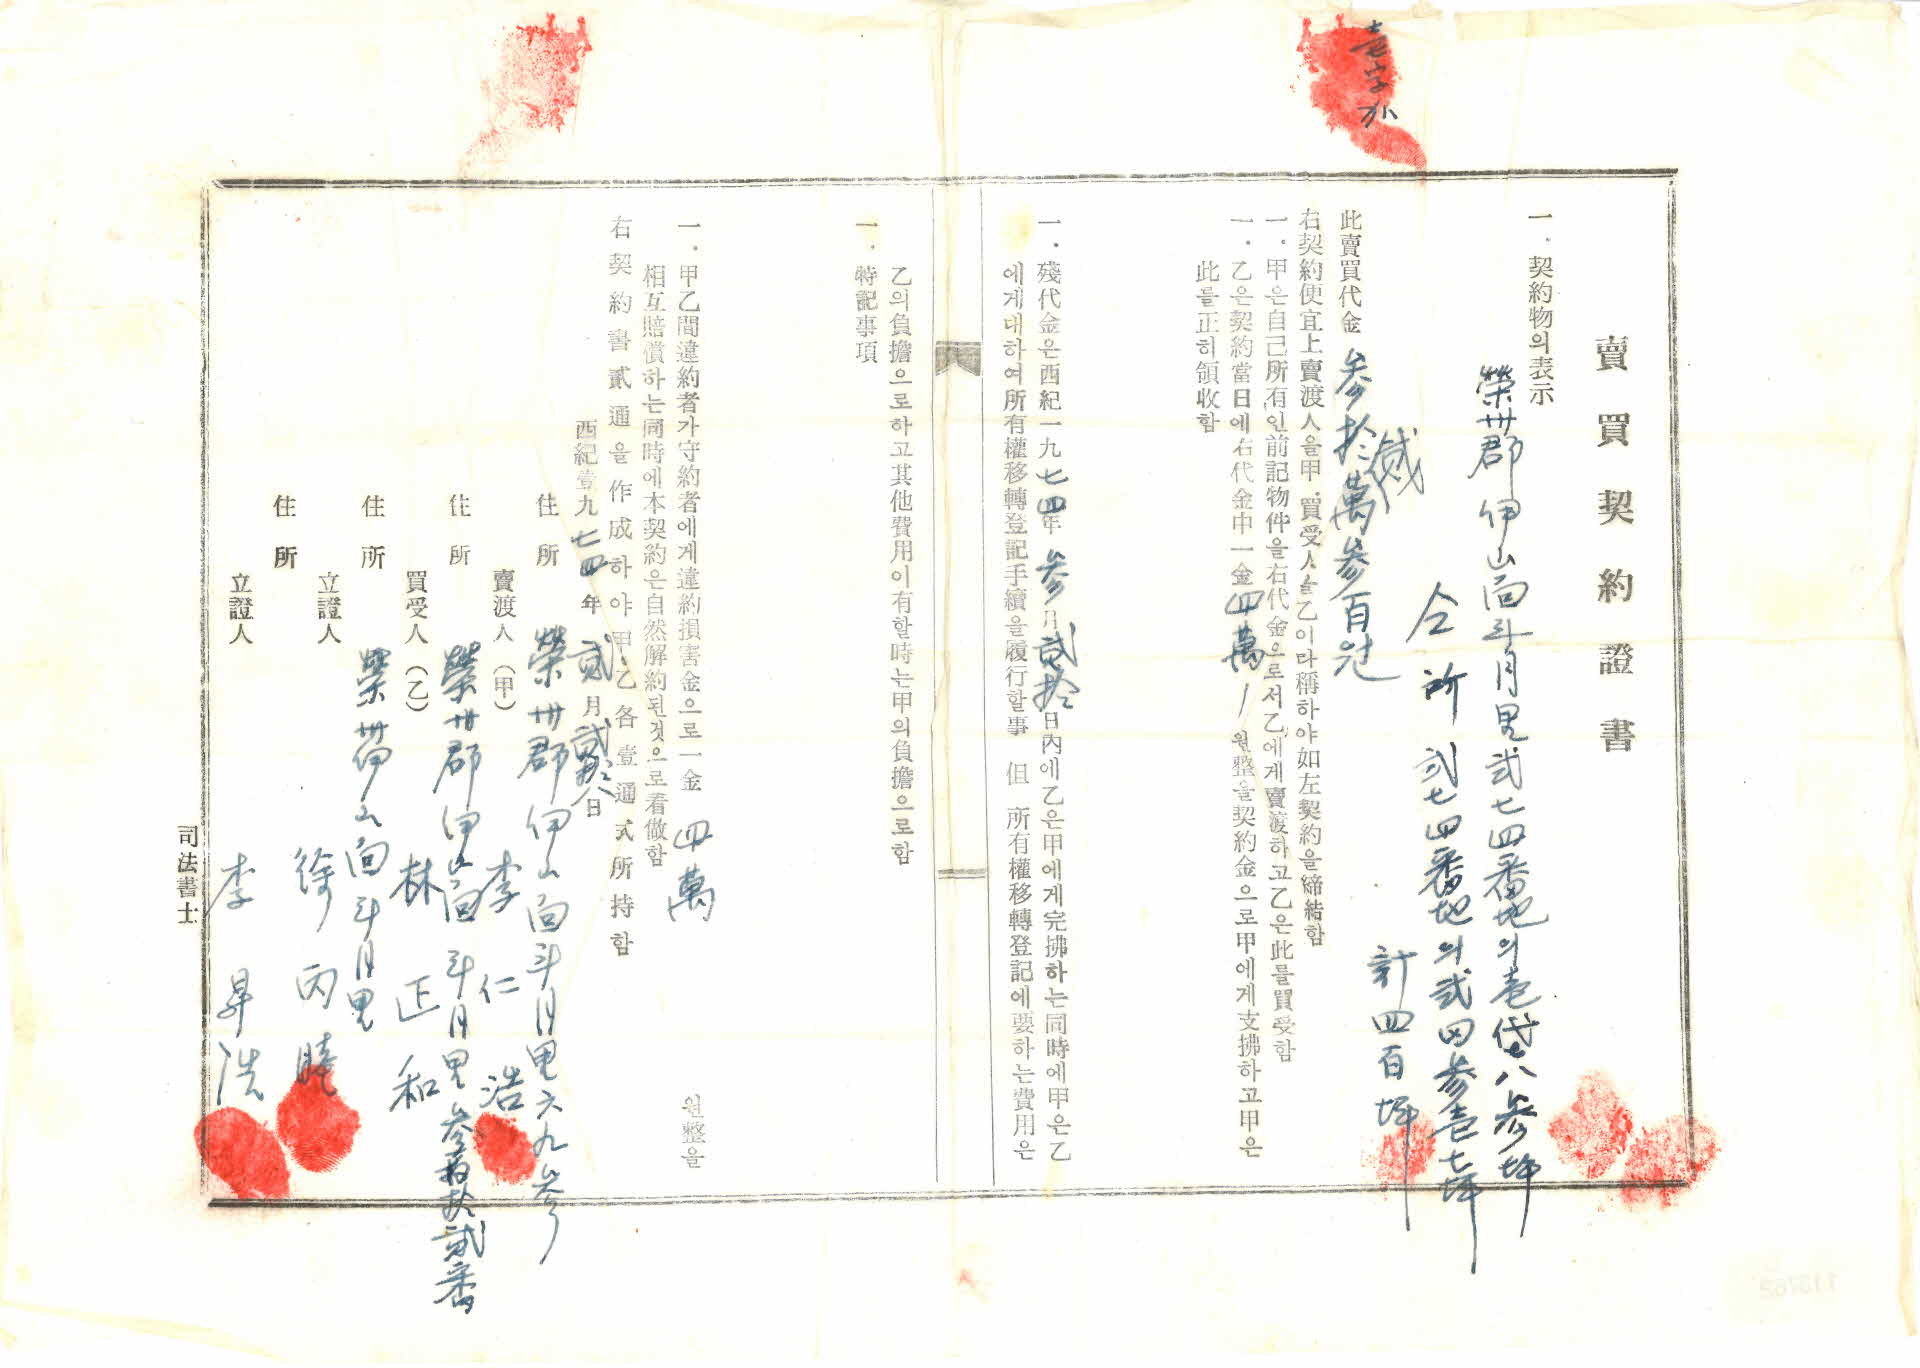 壱字加
賣買契約證書
一.契約物의表示
榮州郡伊山面斗月里弐七四番地의壱垈八参坪
仝所弐七四番地의弐田参壱七坪
計四百坪
此賣買代金参拾萬参百원
右契約便宜上賣渡人을甲.買受人을乙이라稱하야如左契約을締結함
一.甲은自己所有인前記物件을右代金으로서乙에게賣渡하고乙은此를買受함
一.乙은契約當日에右代金中一金四萬원整을契約金으로甲에게支拂하고甲은
此를正히領收함
一.殘代金은西紀一九七四年参月貳拾日內에乙은甲에게完拂하는同時에甲은乙
에게대하여所有權移轉登記手續을履行할事 但 所有權移轉登記에要하는費用은
乙의負擔으로하고其他費用이有할時는甲의負擔으로함
一.特記事項
一.甲乙間違約者가守約者에게違約損害金으로一金四萬원整을
相互賠償하는同時에本契約은自然解約된것으로看做함
右契約書貳通을作成하야甲.乙各壹通式所持함
西紀壹九七四年貳月貳拾八日
住所 榮州郡伊山面斗月里六九参
賣渡人(甲) 李仁浩
住所 榮州郡伊山面斗月里参百拾貳番
買受人(乙) 林正和
住所 榮州伊山面斗月里
立證人 徐丙睦
住所
立證人 李昇浩
司法書士